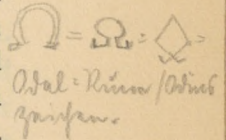 Ω = Ω = ◇ =
Odal=Rune / Odins
zeichen.